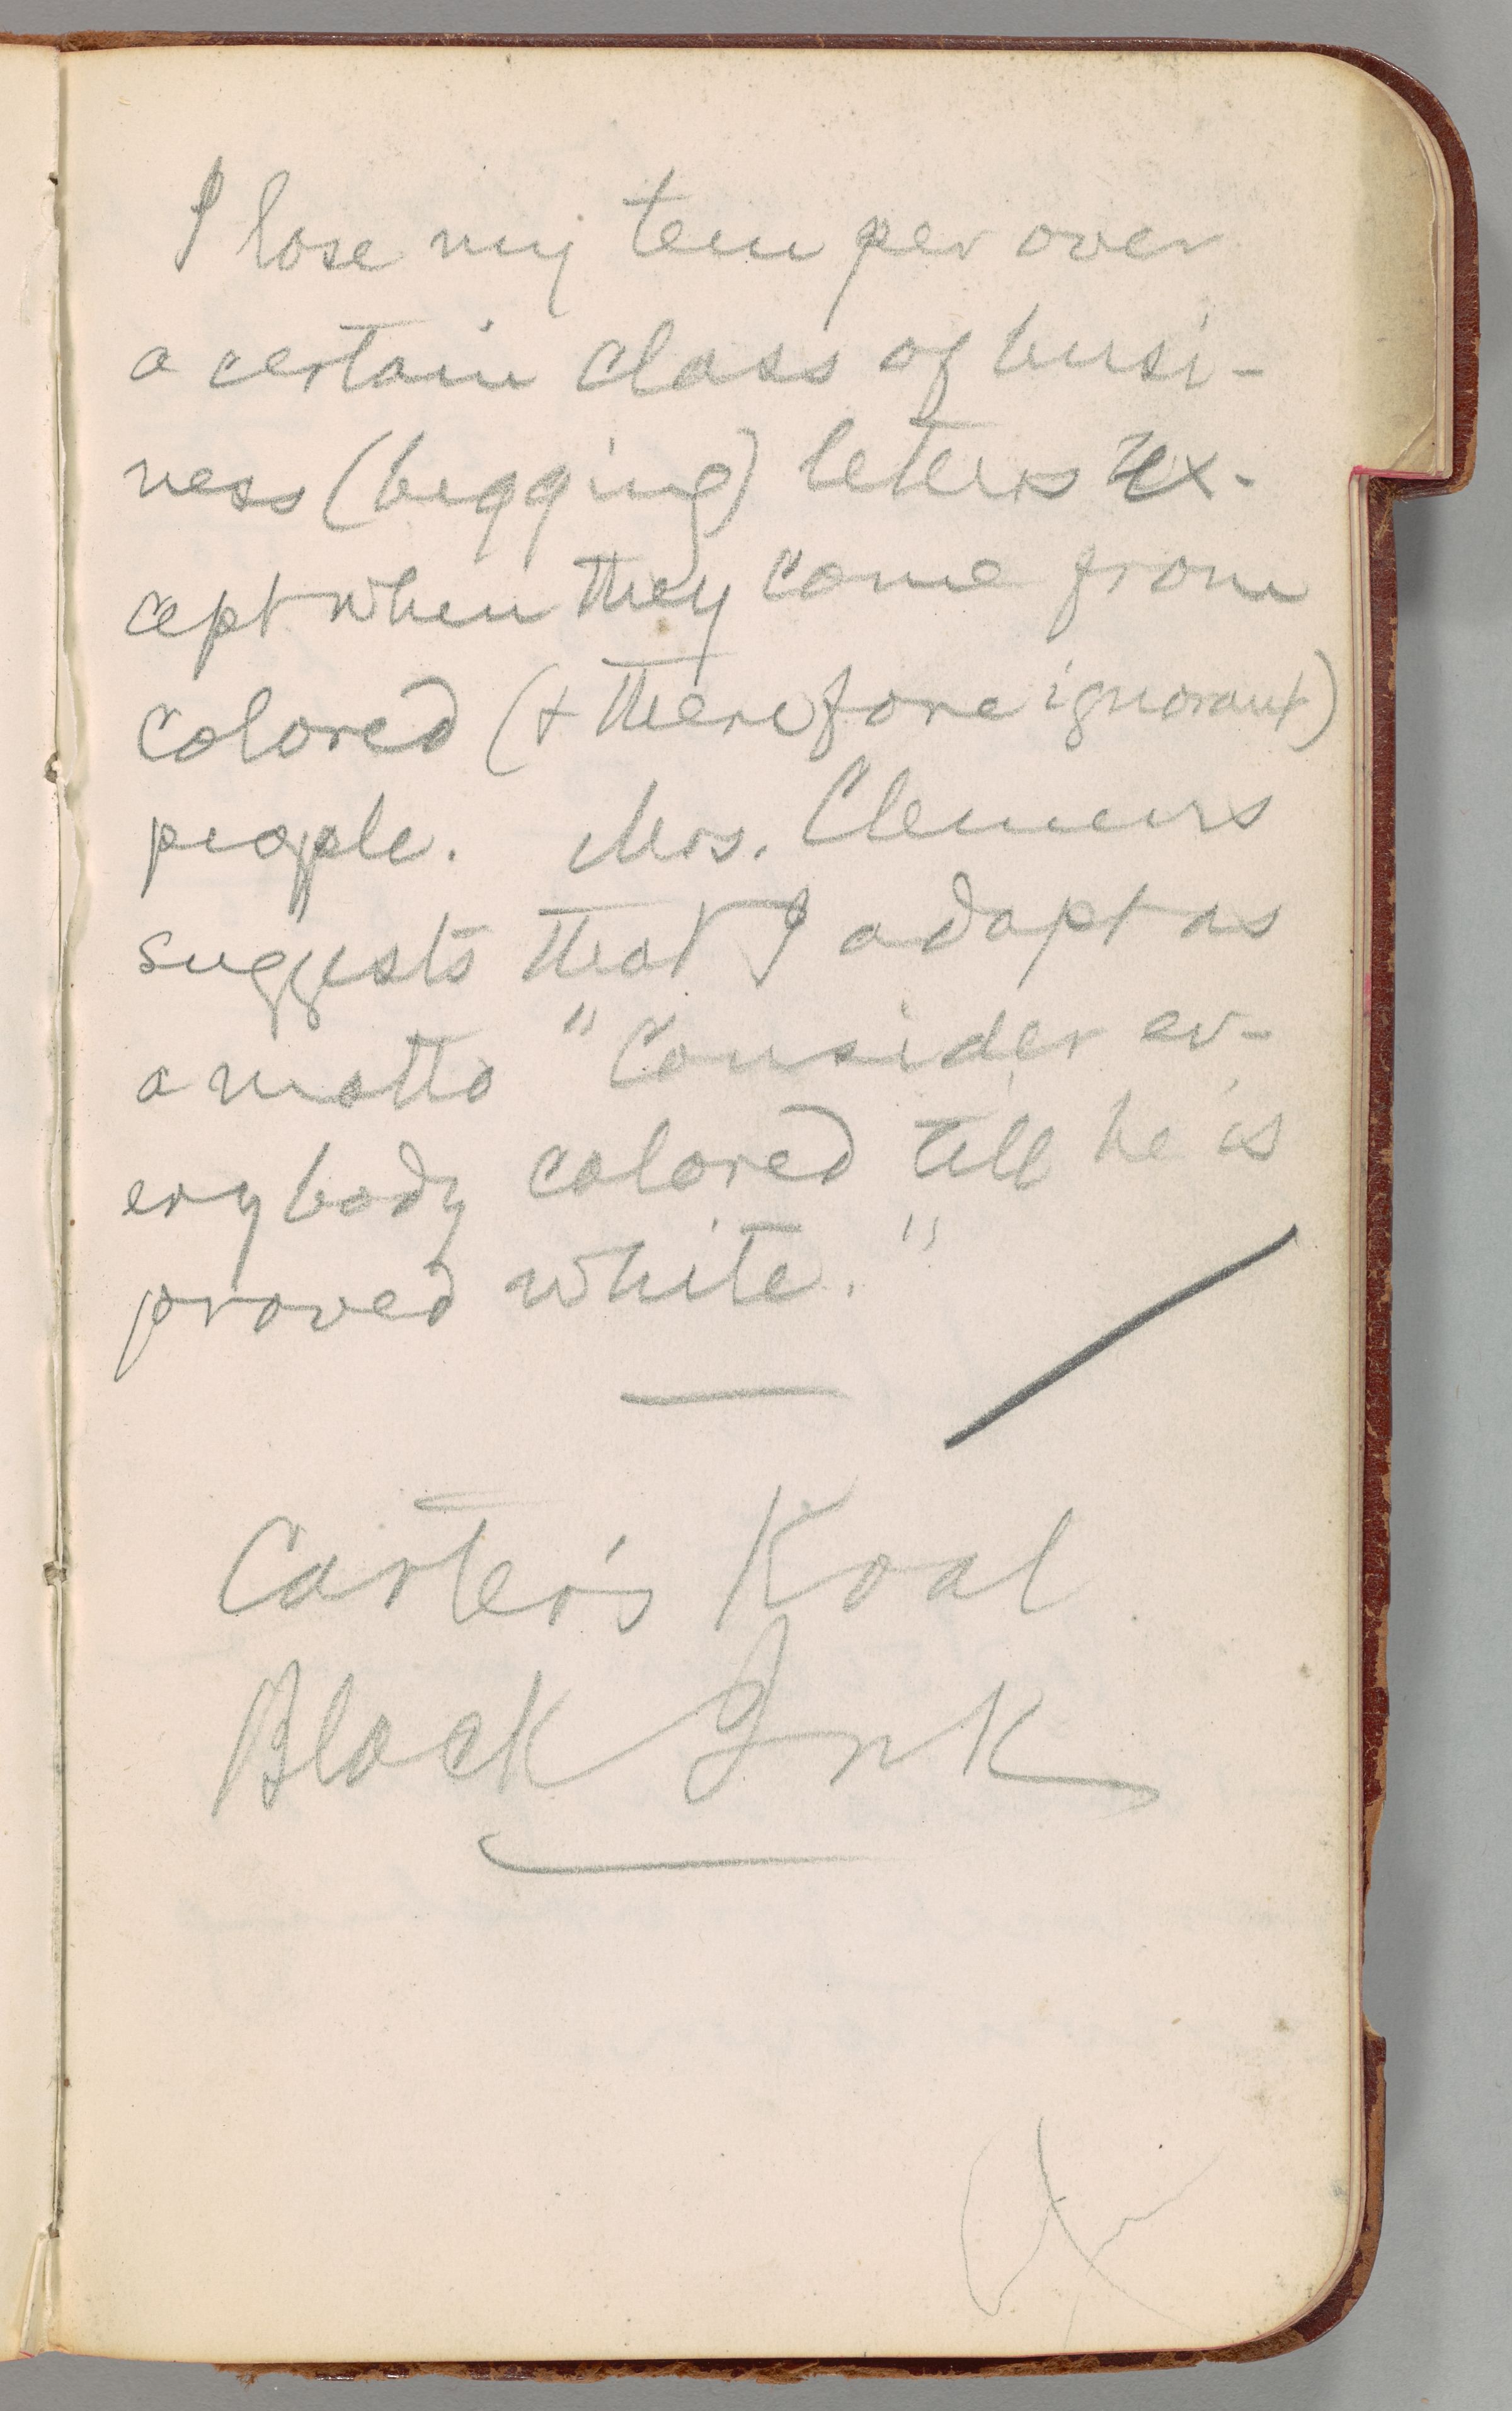 I lose my temper over
a certain class of busi-
ness (begging) letters ex-
cept when they come from
colored (& therefore ignorant)
people. Mrs. Clemens
suggests that I adopt as
a motto "Consider ev-
erybody colored till he is
proved white."
Carter's Koal
Black Ink